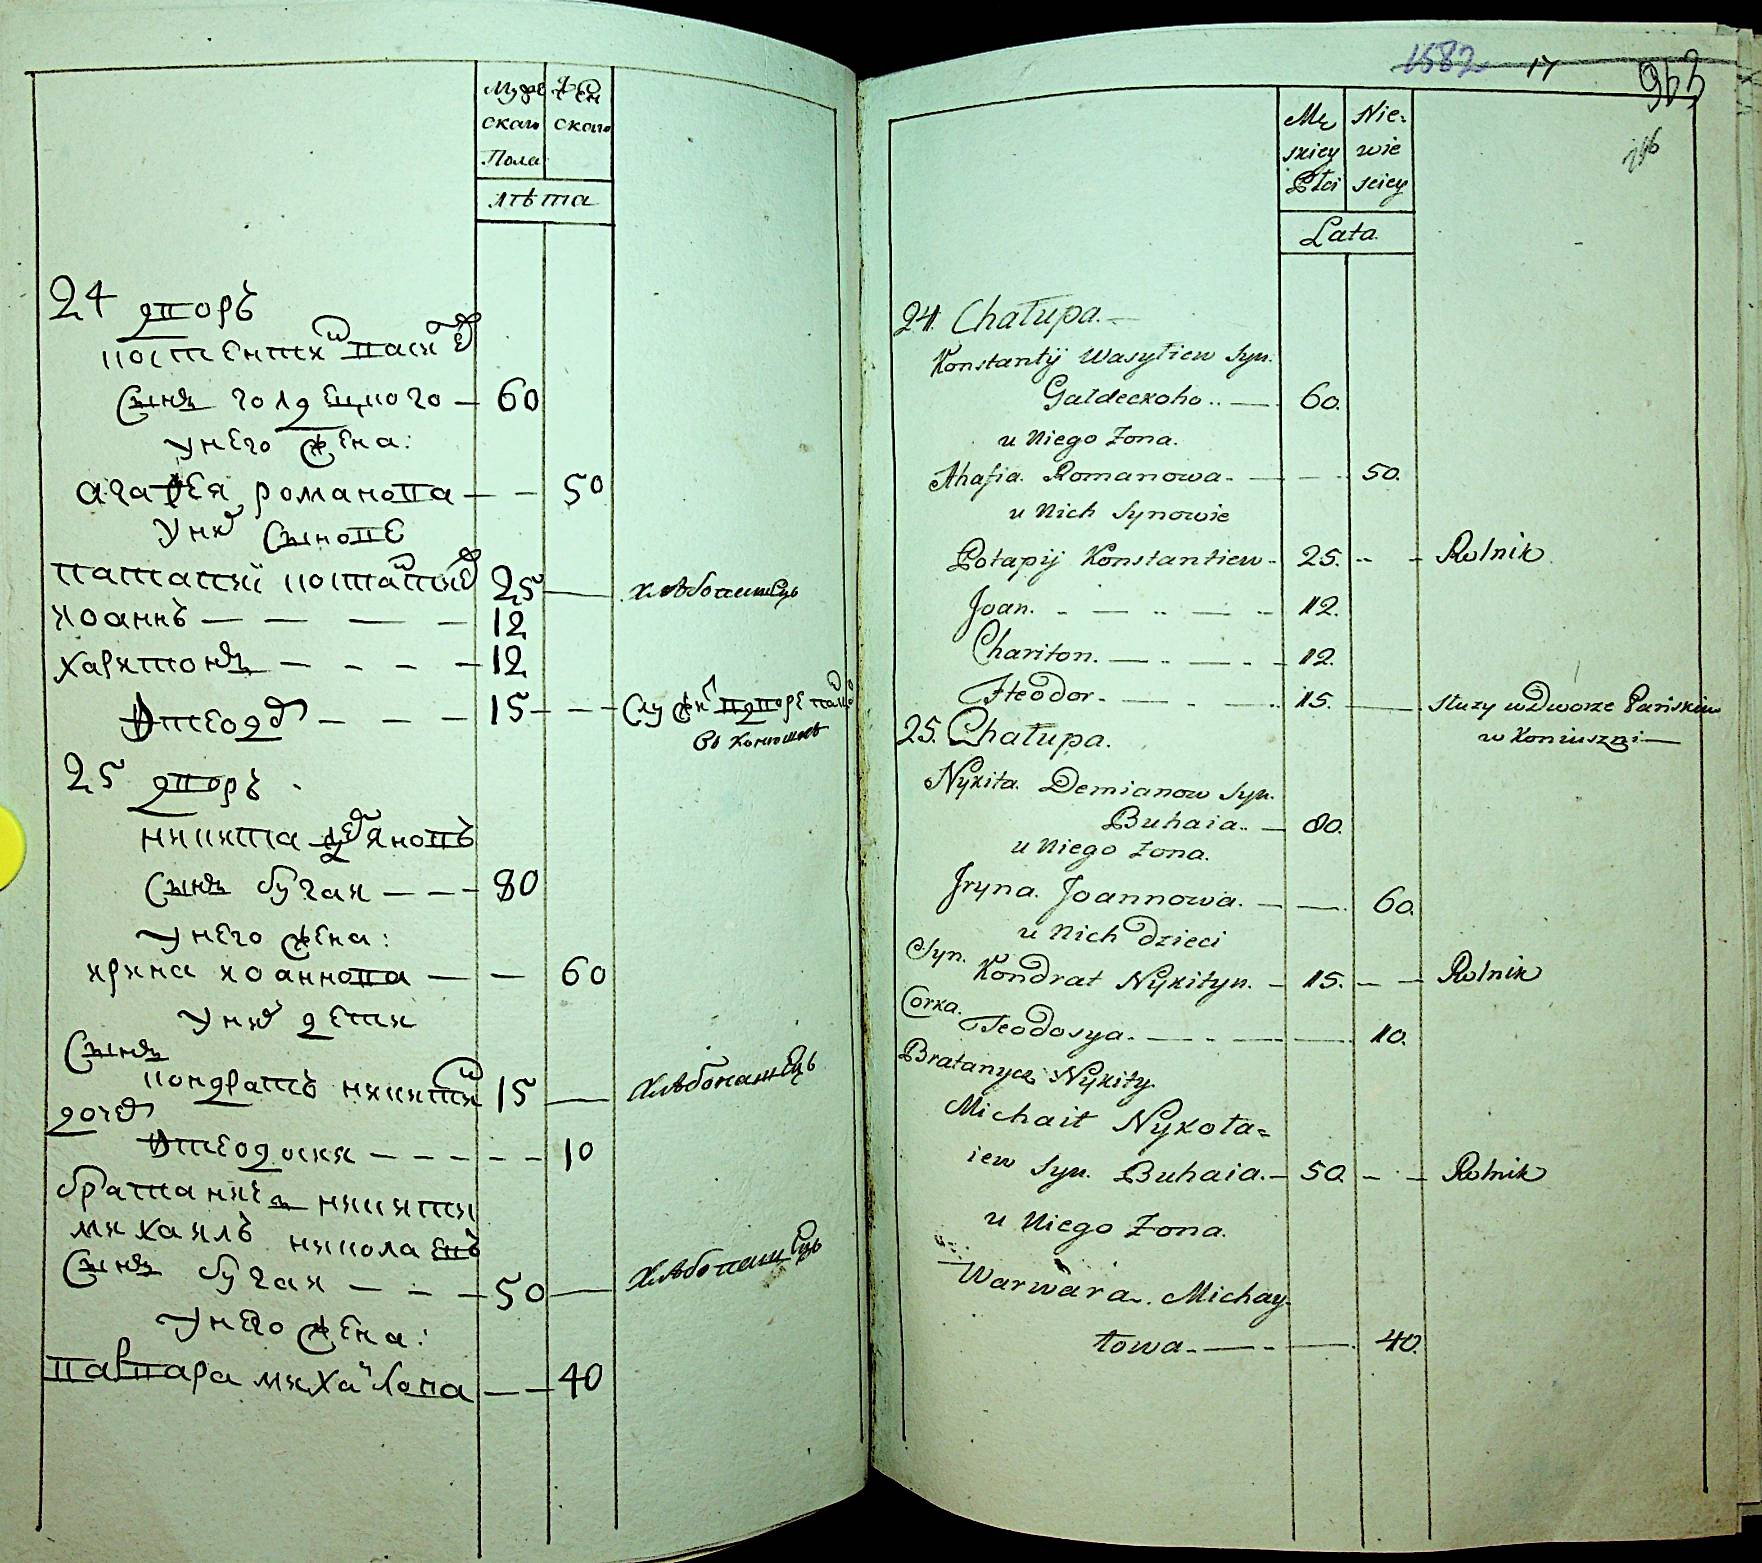 Мужескаго Пола
Женскаго
лѣта
24 дворъ
константий василев
Сынъ голдецкого — 60
У него жена:
агафея романова — — 50
У них Сынове
патапий костантиев 25 — хлѣбопашецъ
иоаннъ — — — — 12
харитонъ — - - — 12
Фтеодор — - - 15 — - — Служит в дворе панском
въ конюшнѣ
25 дворъ
никита демяновъ
Сынъ бугай — — - 80
У него жена:
ирина иоаннова — — 60
У них дети
Сынъ
кондратъ никитин 15 — Хлѣбопашецъ
дочер
Фтеодосия — - - - - - 10
братаничъ никити
михаилъ николаевъ
Сынъ бугай — - - 50 — Хлѣбопашецъ
У него жена:
варвара михайлова — — 40
1582 17
946
Męskiey Płci
Niewieściey
Lata.
24. Chałupa.
Konstantÿ Wasyliew Syn.
Gałdeckoho.. — 60.
u Niego Zona.
Ahafia. Romanowa. - — - . 50.
u Nich Synowie
Potapij Konstantiew - 25. -- - Rolnik
Joan. - — .. — .. 12.
Chariton. — .. — . - 12.
Fteodor. - — - . — 15. — służy w Dworze Pańskim
w Koniuszni —
25. Chałupa.
Nykita. Demianow Syn.
Buhaia. . — 80.
u Niego Zona.
Jryna. Joannowa. — — . 60.
u Nich Dzieci
Syn.
Kondrat Nykityn. - 15. - - Rolnik
Corka.
Fteodosya. - — . - — 10.
Bratanycz Nykity.
Michaił Nykoła=
iew Syn. Buhaia. - 50. - - Rolnik
u Niego Zona.
Warwara. Michay-
łowa - — . - — 40.